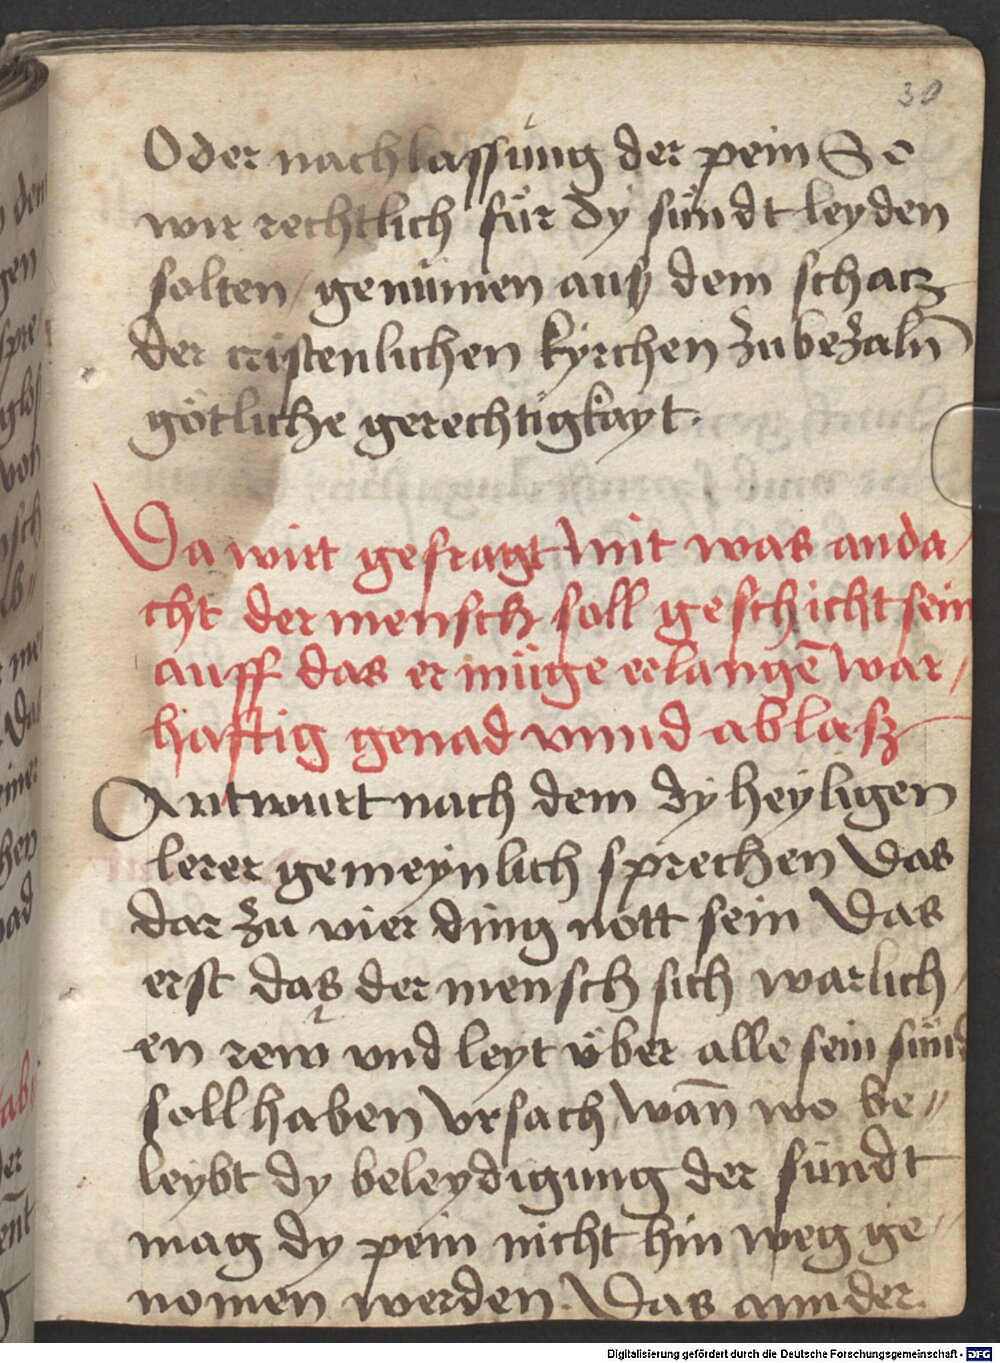 30
Oder nachlassung der pein So
wir rechtlich für dy sündt leyden
solten / genumen aus dem schacz
der cristenlichen kyrchen zu bezaln̄
götliche gerechtigkayt.
Da wirt gefragt mit was anda/
cht der mensch soll geschicht sein
auff das er müge erlangē war/
hafftig genad vnnd ablasz
Antwurt nach dem dy heyligen
lerer gemeynlich sprechen Das
dar zu vier ding nott sein Das
erst das der mensch sich warlich/
en rew vnd leyt über alle sein sünd
soll haben vrsach / wān wo be//
leybt dy beleydigung der sündt
mag dy pein nicht hin weg ge//
nomen werden. Das annder.
Digitalisierung gefördert durch die Deutsche Forschungsgemeinschaft - DFG